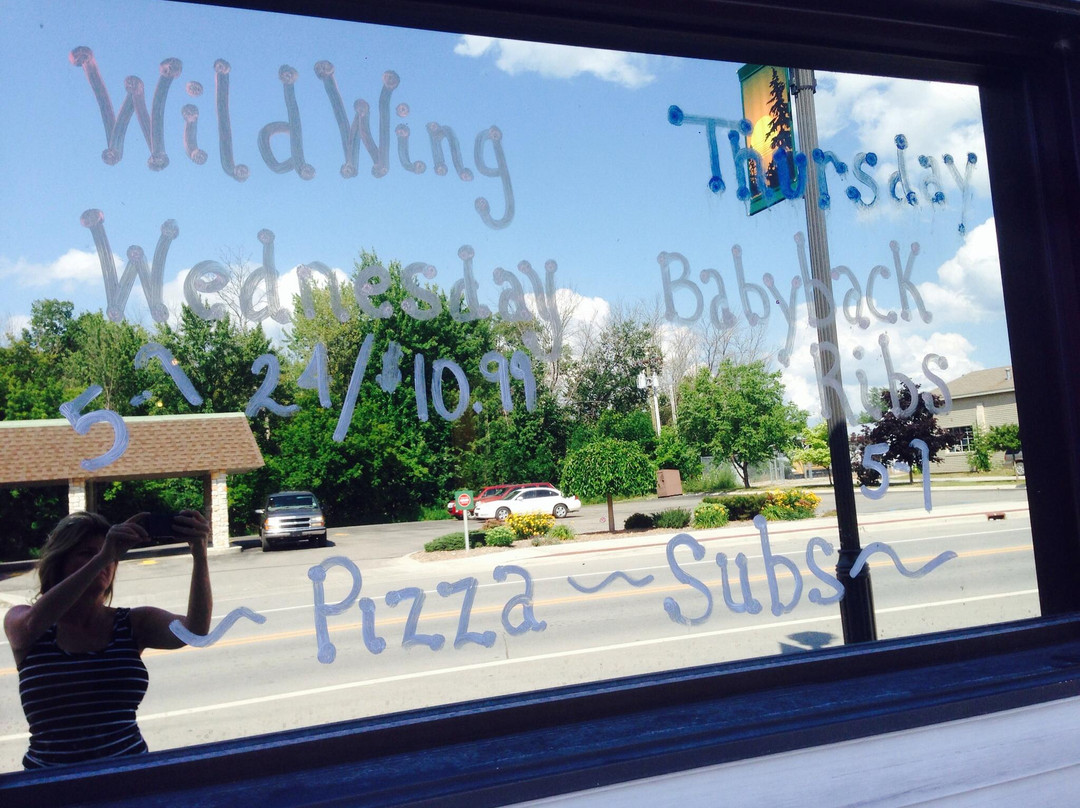 Wild Wing
Wednesday
5-7 24/$10.99
Thursday
Babyback
Ribs
5-7
~ Pizza ~ Subs ~